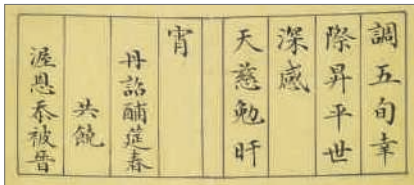 調五旬幸
際昇平世
深感
天慈勉旰
宵
丹詔酺筵春
共饒
渥恩忝被晉